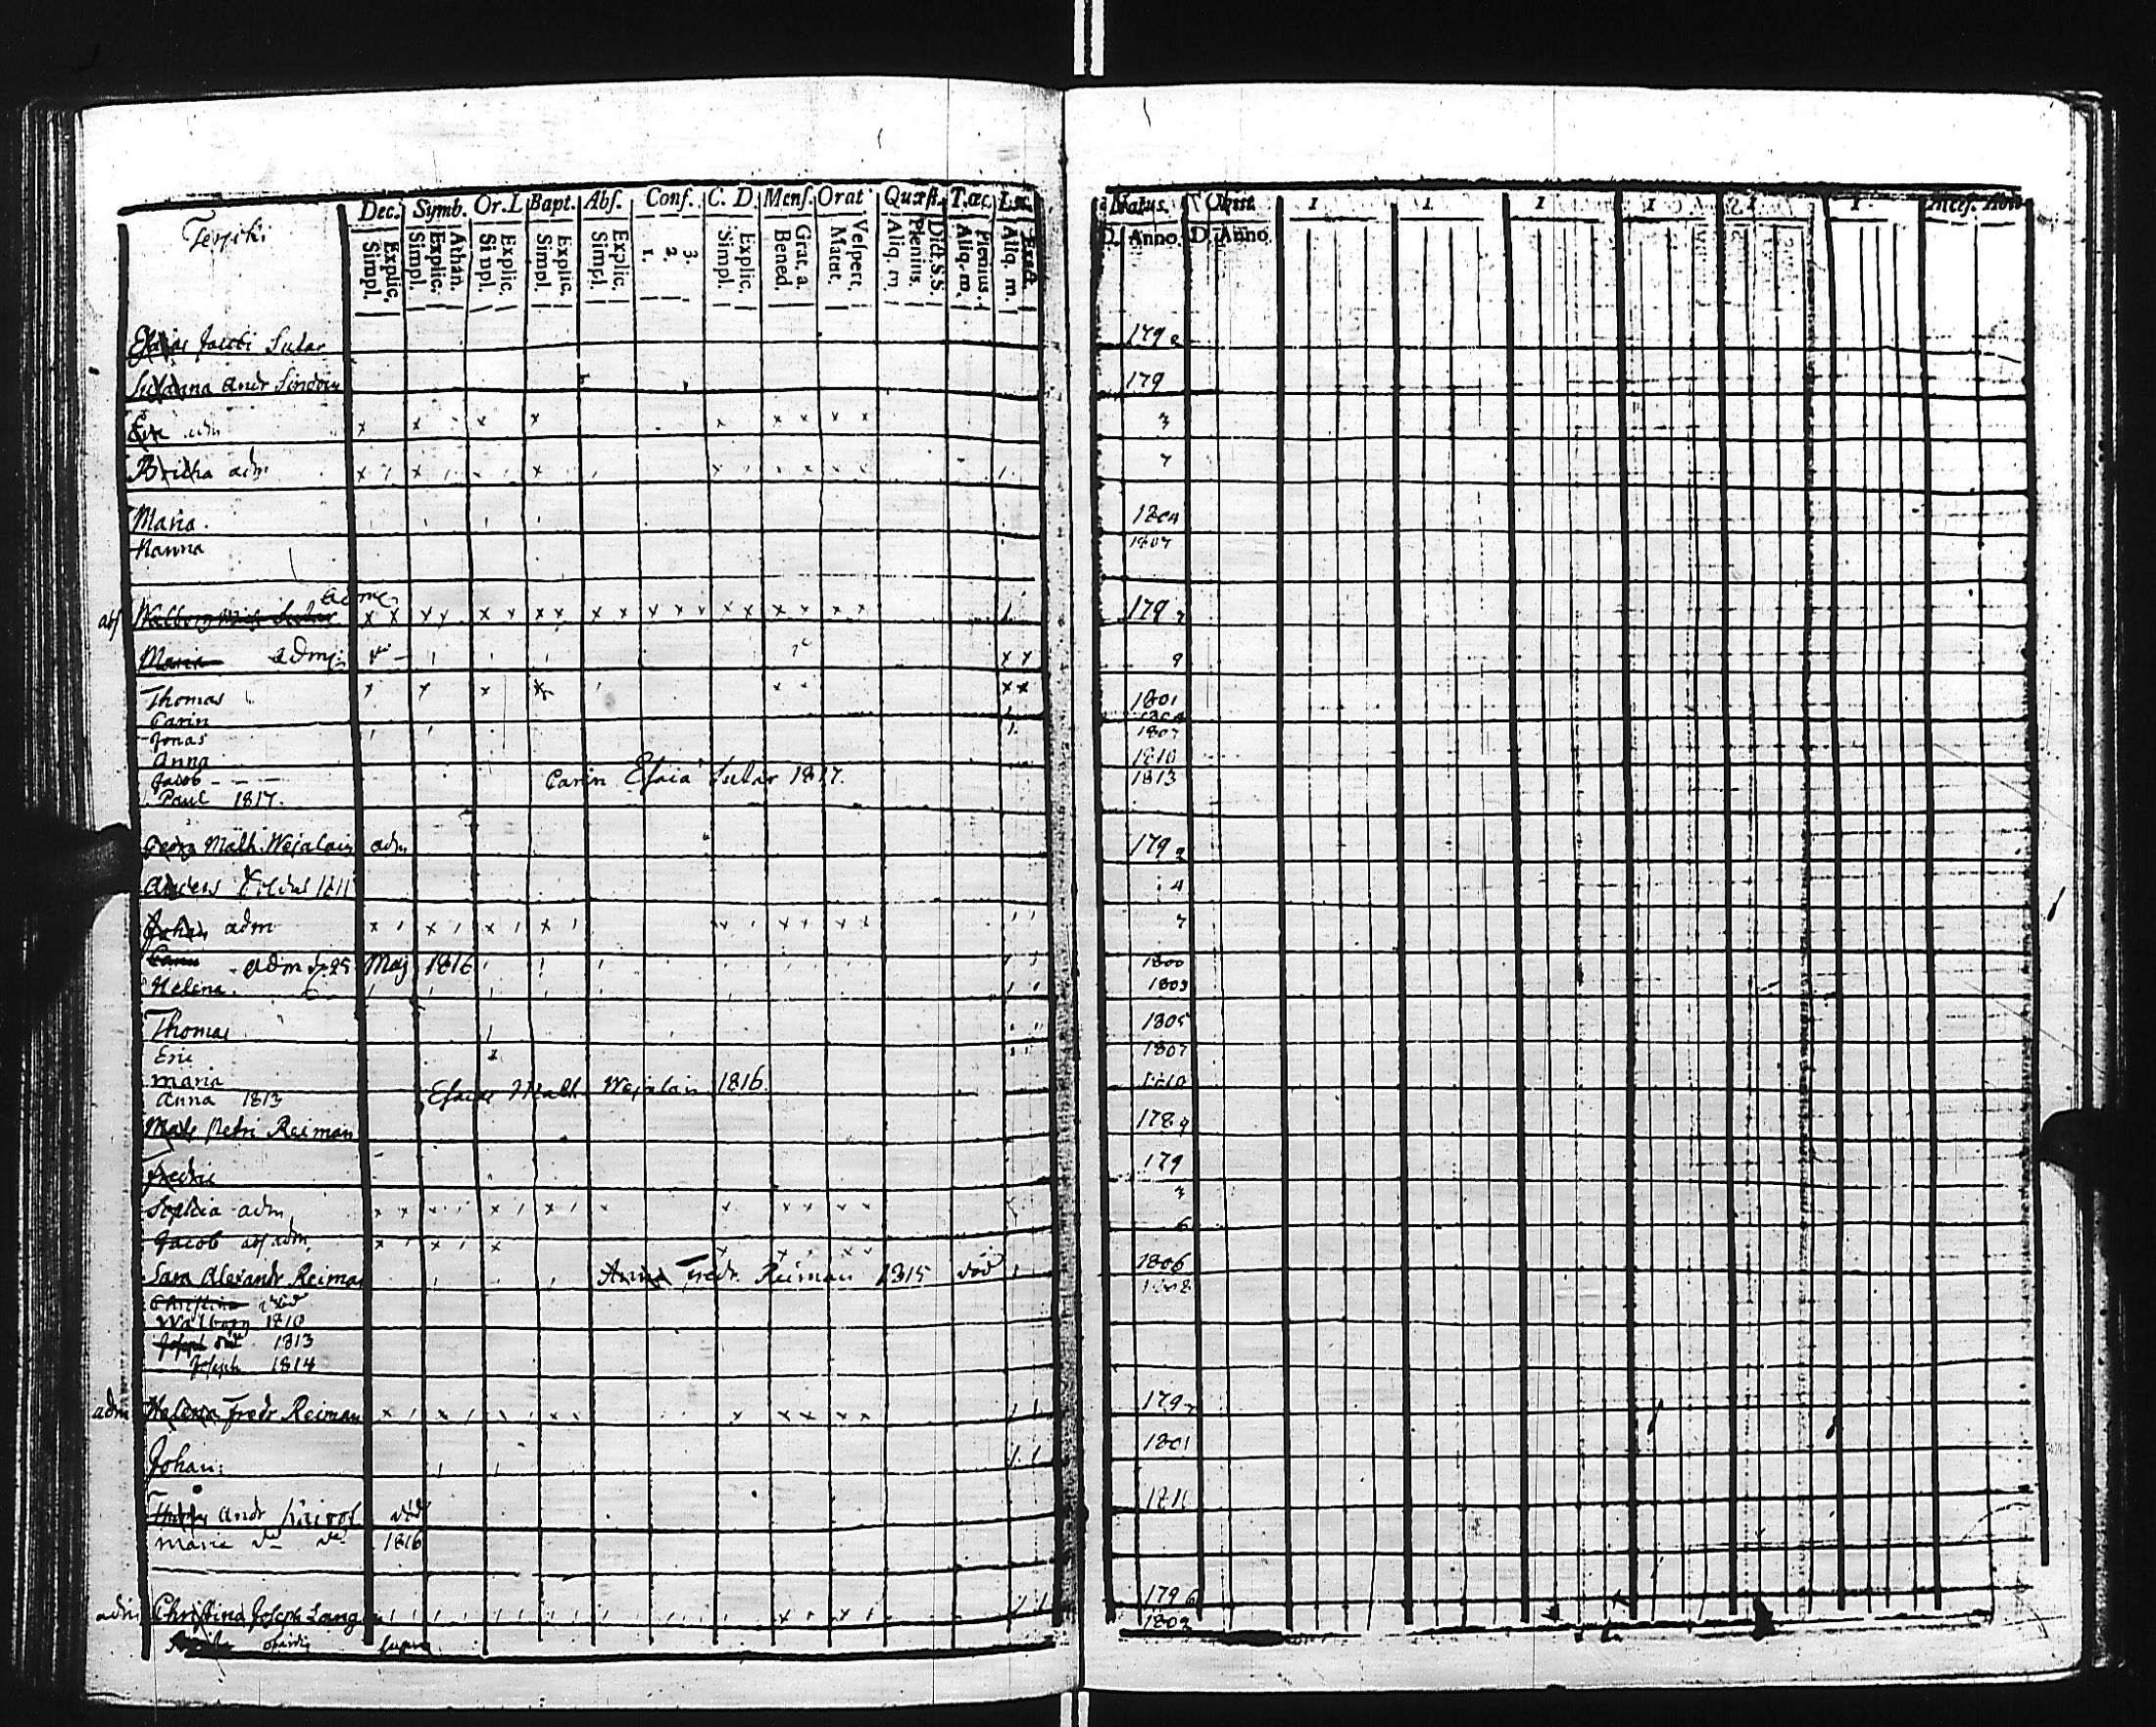 Terjiki
Dec. Symb. Or. L Bapt. Abs. Conf. C. D. Mens. Orat Quæst. T.œc.
Explic. Simpl. Athan. Explic. Simpl. Explic. Explic. Simpl. Explic. Simpl. 3. 2. 1. Explic. Simpl. Grat. a. Bened. Vespert. Matut. Dict. S. S. Plenius. Aliq. m. Plenius. Aliq. m. Exact. Aliq. m.
Natus. Obiit.
D. Anno. D. Anno.
Esaias Jacobi Sutar 179
Susanna Andr 179
Eva adm 3
Britha adm 7
Maria. 1804
Nanna 1807
abs Walborg Sutar adm 1797
Maria adm 9
Thomas 1801
Carin
Jonas 1807
Anna 1810
Jacob - - - Carin Esaiæ Sutar 1817. 1813
Paul 1817.
Math. Wejalain adm 179
Anders 1811 4
Johan adm 7
Carin adm d. 25 Maj 1816 1800
Helena. 1803
Thomas 1805
Eric 1807
Maria 1810
Anna 1813 Esaias Math Wejalain 1816.
Mats Petri Reiman 1789
Fredric 179
Sophia adm 3
Jacob abs adm. 6
Sara Alexandr Reiman Anna Fredr. Reiman 1815 död 1806
Christina död 1808
Walborg 1810
Joseph död 1813
Joseph 1814
adm Helena Fredr Reiman 1797
Johan: 1801
Thomas Andr död 1811
Maria 1816
adm Christina Joseph Lang 1796
supra 1803